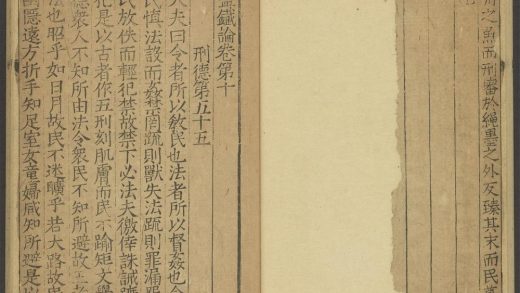 之魚而刑審於繩墨之外反臻其末而民
鹽鐵論卷第十
刑德第五十五
大夫曰令者所以敎民也法者所以督姦也令
民慎法設而姦禁罔疏則獸失法疏則罪漏罪
民放佚而輕犯禁故禁下必法夫徼倖誅誠
犯是以古者作五刑刻肌膚而民不踰矩文學
衆人不知所由法令衆民不知所避故王者
法也昭乎如日月故民不迷曠乎若大路故民
幽隱遠方折手知足室女童婦咸知所避是以